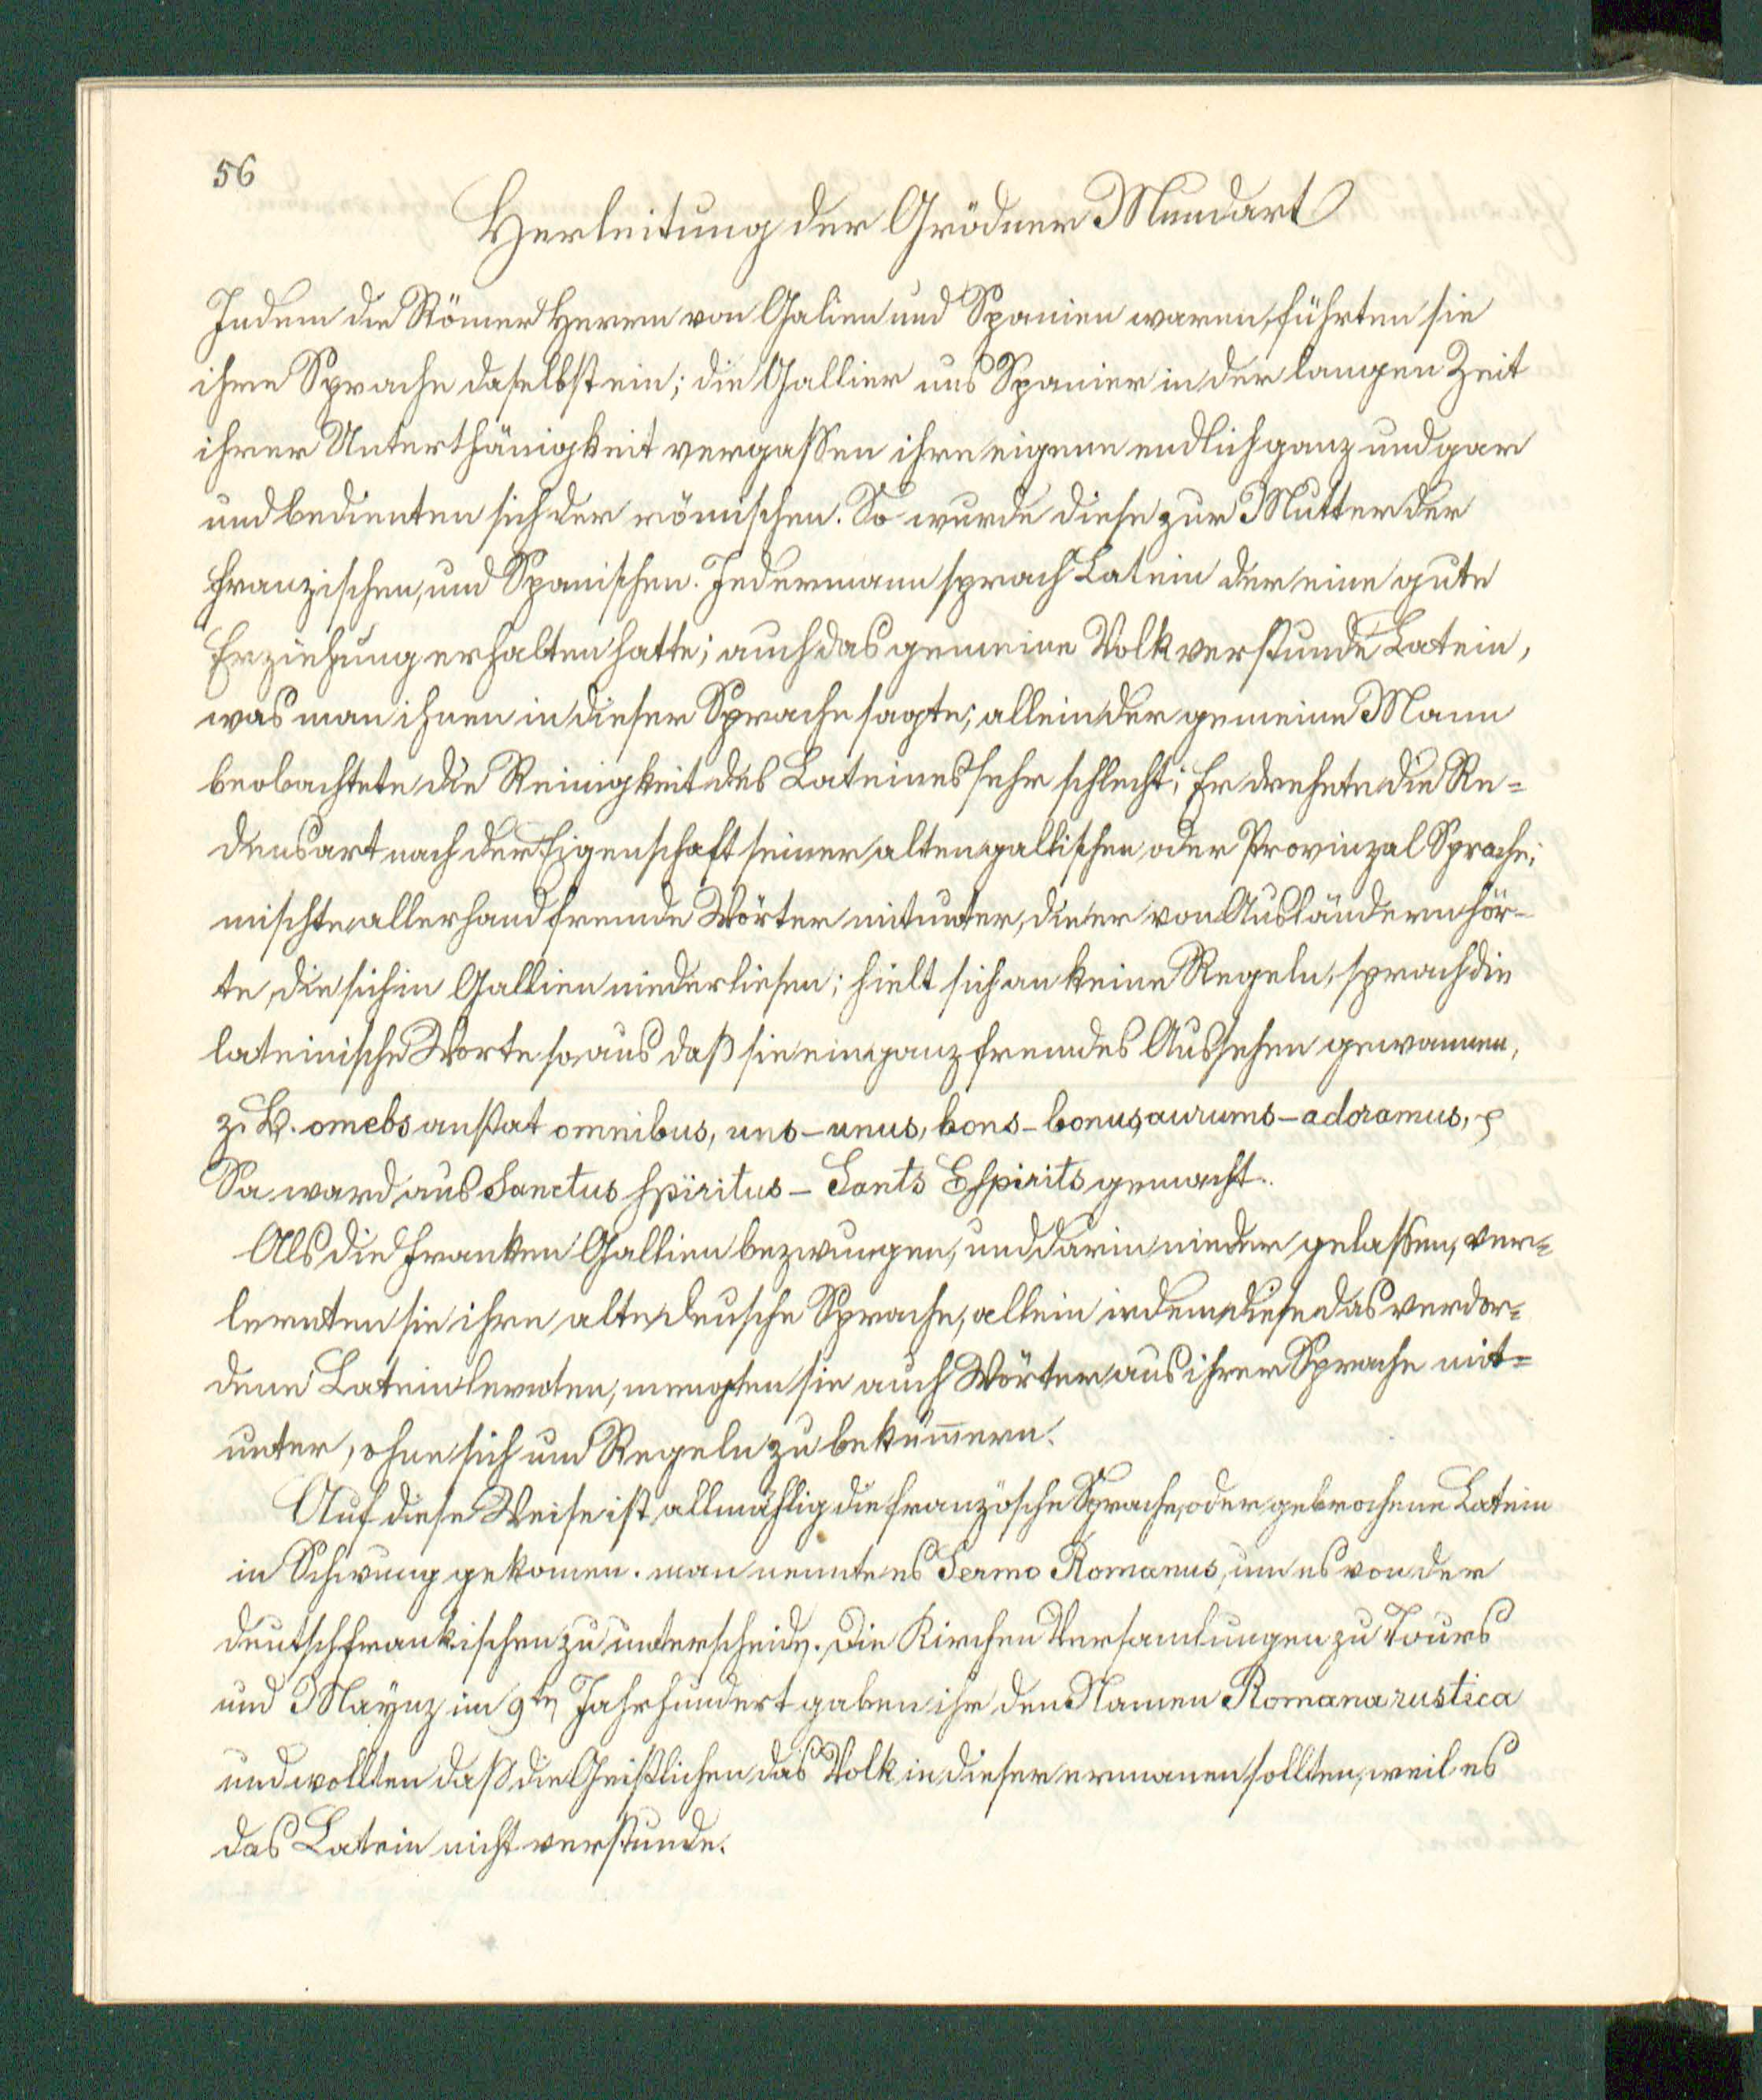 56
Herleitung der Grödner Mundart
Indem die Römer Herren von Galien und Spanien waren, führten sie
ihre Sprache daselbst ein; die Gallier und Spanier in der langen Zeit
ihrer Unterthänigkeit vergassen ihre eigene endlich ganz und gar
und bedienten sich der römischen. So wurde diese zur Mutter der
französischen, und Spanischen. Jedermann sprach Latein der eine gute
Erziehung erhalten hatte; auch das gemeine Volk verstunde Latein,
was man ihnen in dieser Sprache sagte; allein der gemeine Mann
beobachtete die Reinigkeit des Lateines sehr schlecht; Er drehete die Re=
densart nach der Eigenschaft seiner alten gallischen oder Provinzal Sprache;
mischte allerhand fremde Wörter mitunter, die er von Ausländern hör-
te, die sich in Gallien niederliesen; hielt sich an keine Regeln, sprach die
lateinische Worte so aus daß sie ein ganz fremdes Aussehen gewannen,
z. B. omebs anstat omnibus, uns – unus, bons – bonus, aurums – adoramus,
So ward aus Sanctus Spiritus – Sants Espirits gemacht.
Als die Franken Gallien bezwungen, und darin nieder gelassen, ver=
lernten sie ihre alte deusche Sprache, allein indem diese das verdor=
dene Latein lernten, mengten sie auch Wörter aus ihrer Sprache mit=
unter, ohne sich um Regeln zu bekümmern.
Auf diese Weise ist allmählig die französche Sprache, oder gebrochene Latein
in Schwung gekomen. man nennte es Sermo Romanus, um es von der
deutschfrankischen zu unterscheiden. Die Kirchen Versamlungen zu Tours
und Maynz im 9ten Jahrhundert gaben ihr den Namen Romana rustica
und wollten daß die Geistlichen das Volk in dieser ermanen sollten, weil es
das Latein nicht verstunde.